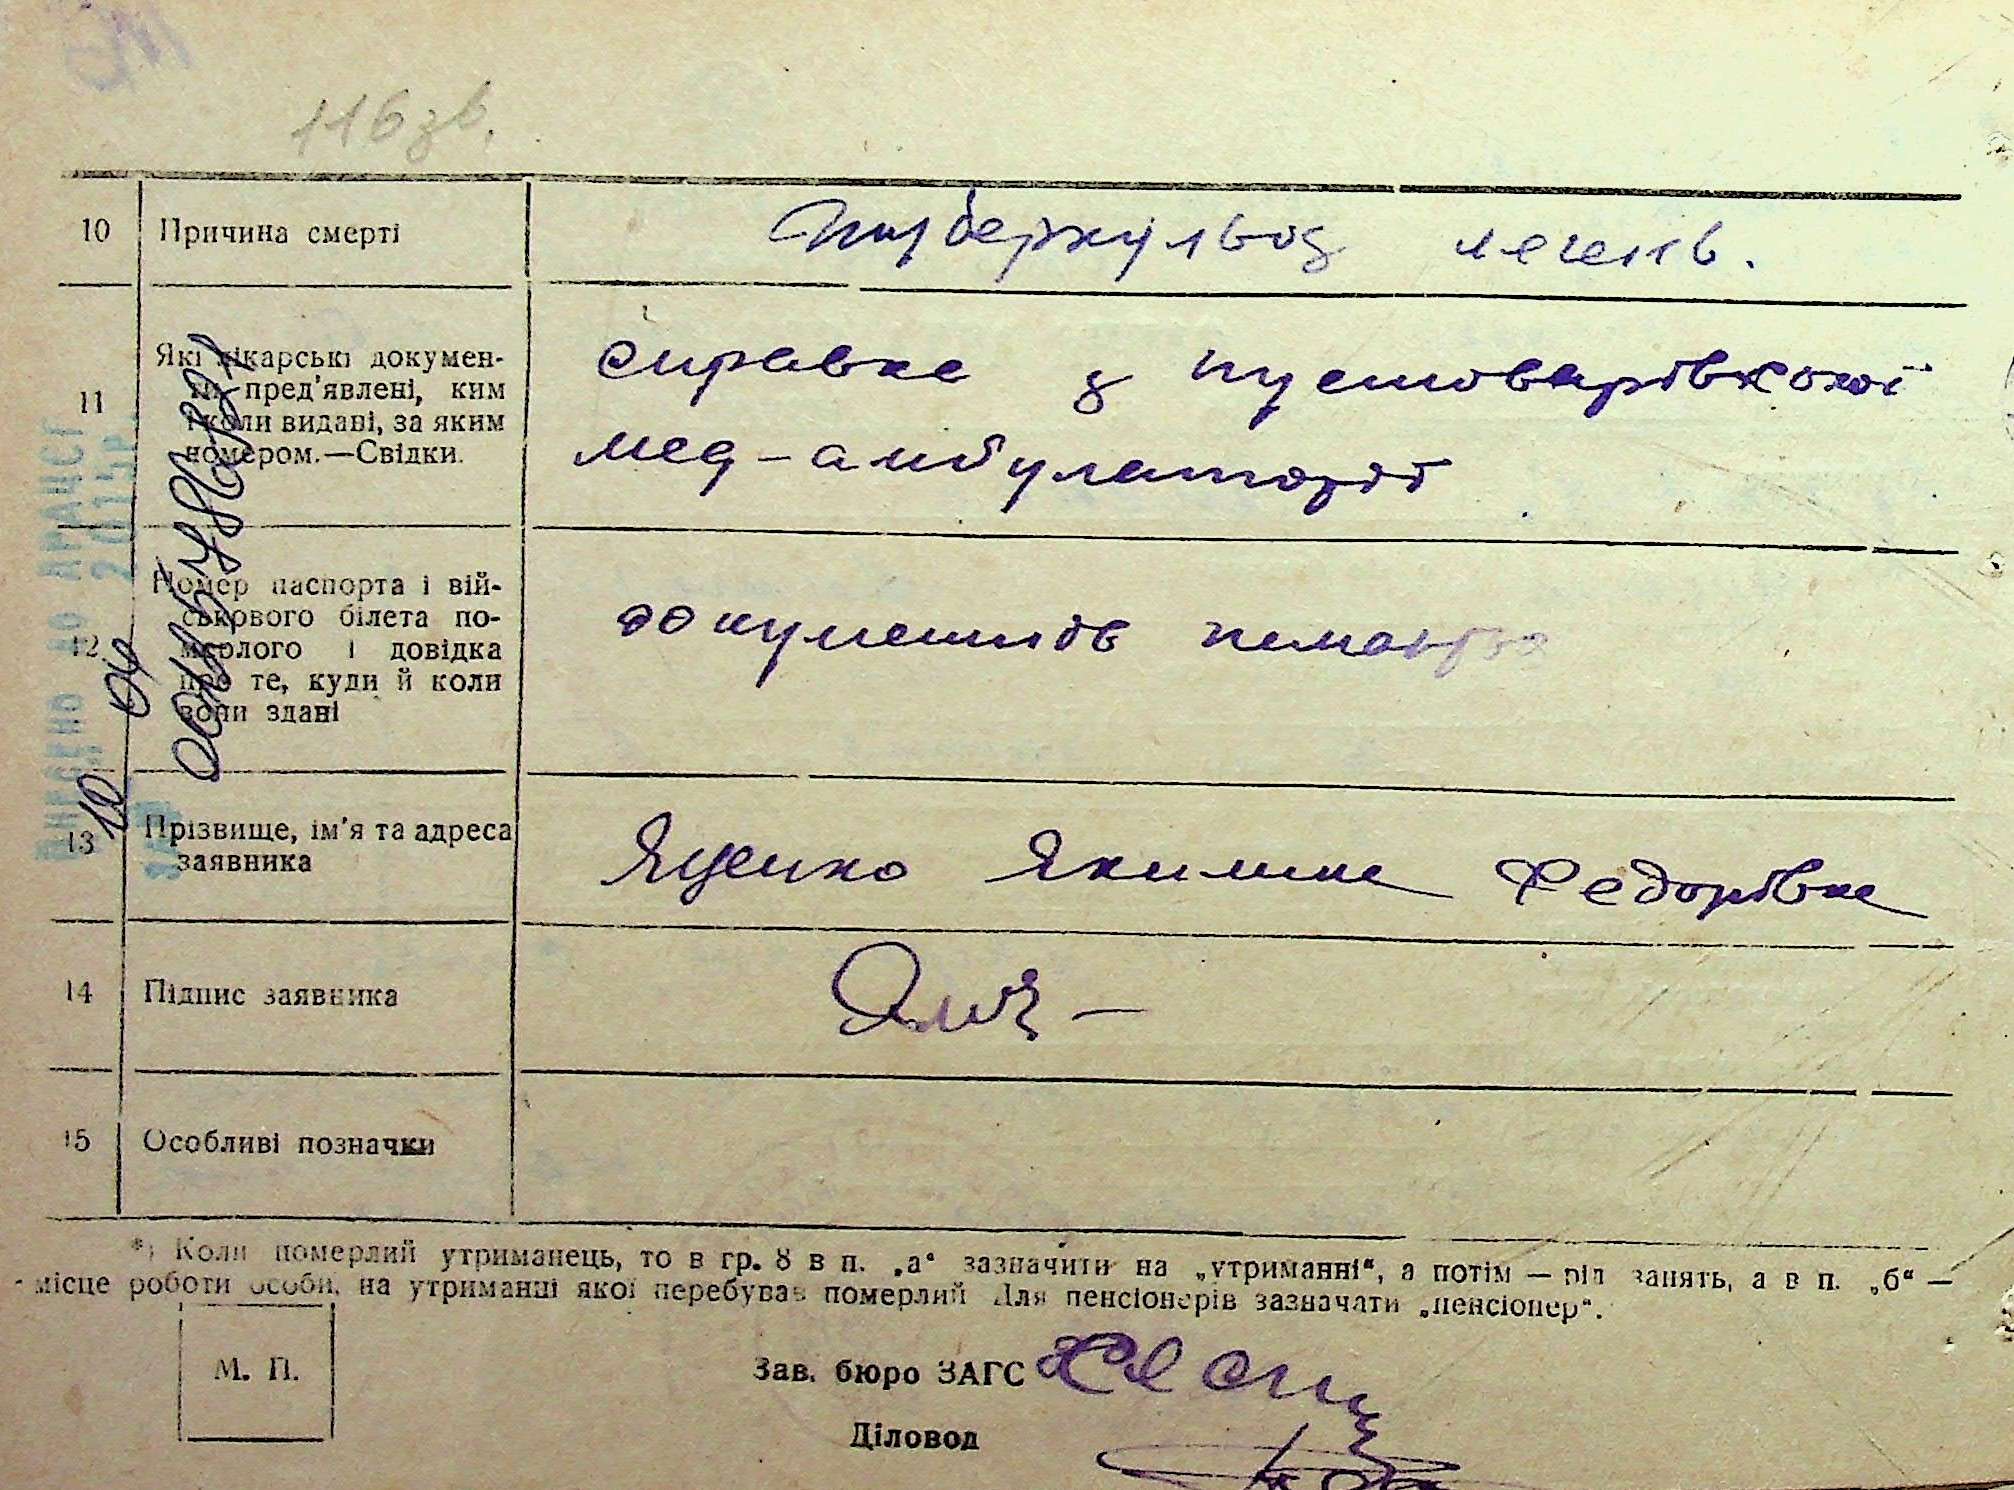 116 зв.
10 Причина смерті Туберкульоз легень.
11 Які лікарські докумен-
ти пред'явлені, ким
і коли видані, за яким
номером.—Свідки.
справка з пустоварівської
мед-амбулаторії
12 Номер паспорта і вій-
ськового білета по-
мерлого і довідка
про те, куди й коли
вони здані
документів немає
13 Прізвище, ім'я та адреса
заявника
Яценко Якилина Федорівна
14 Підпис заявника
15 Особливі позначки
*) Коли померлий утриманець, то в гр. 8 в п. „а“ зазначити на „утриманні“, а потім — рід занять, а в п. „б“ —
місце роботи особи, на утриманні якої перебував померлий Для пенсіонерів зазначати „пенсіонер“.
М. П.
Зав. бюро ЗАГС
Діловод
Внесено до ДРАЦСГ